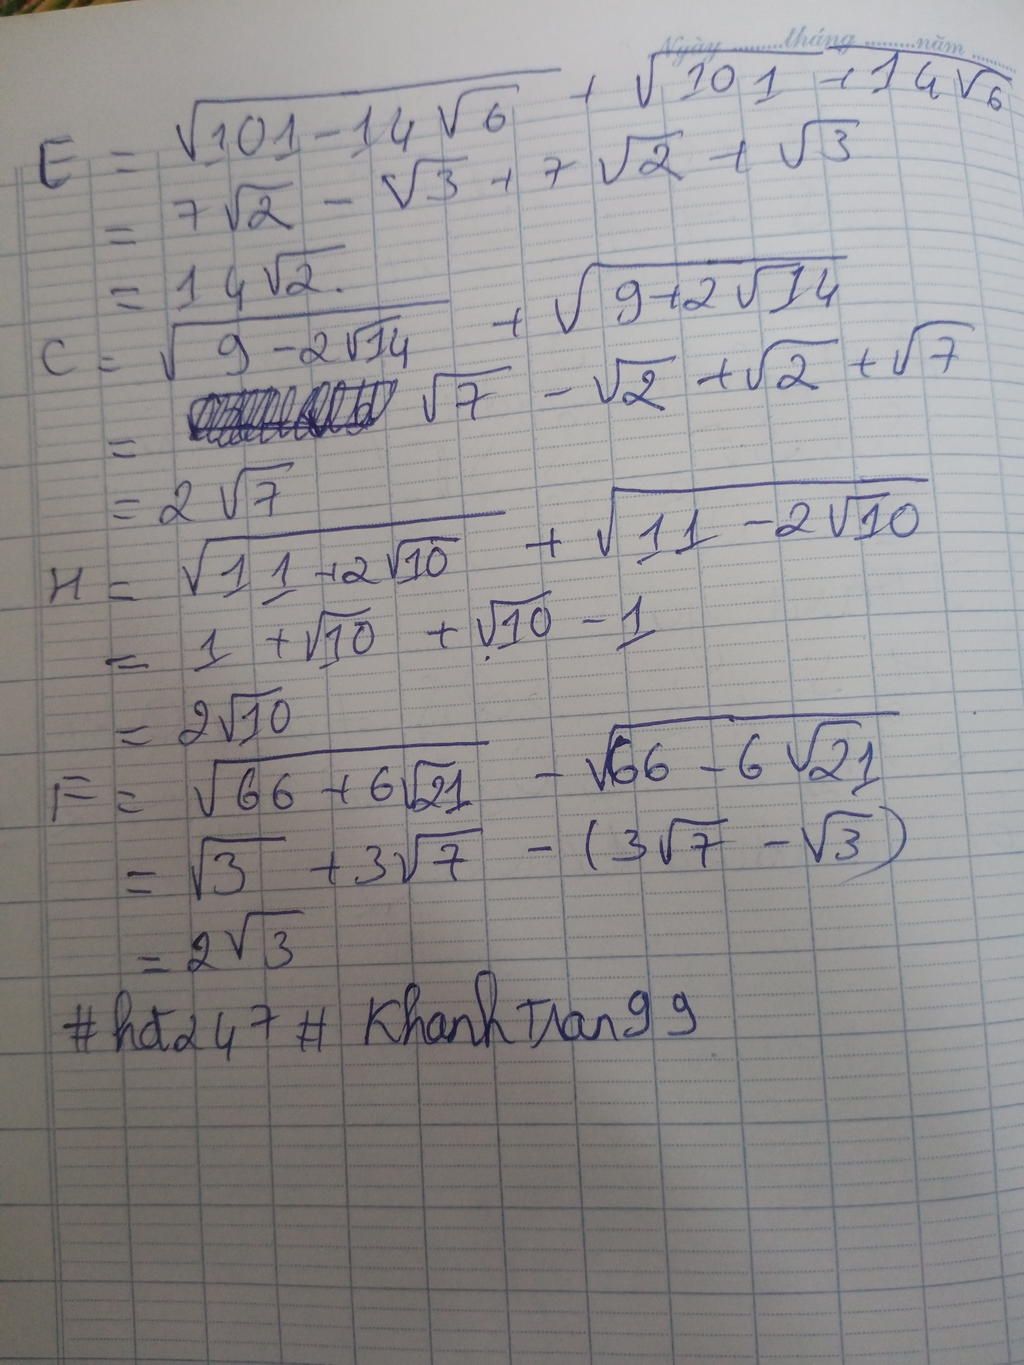 Ngày ........tháng ........năm ......
E = √101 - 14√6 + √101 + 14√6
= 7√2 - √3 + 7√2 + √3
= 14√2.
C = √9 - 2√14 + √9 + 2√14
= √7 - √2 + √2 + √7
= 2√7
H = √11 + 2√10 + √11 - 2√10
= 1 + √10 + √10 - 1
= 2√10
F = √66 + 6√21 - √66 - 6√21
= √3 + 3√7 - (3√7 - √3)
= 2√3
#hđ247# Khanh Tran99